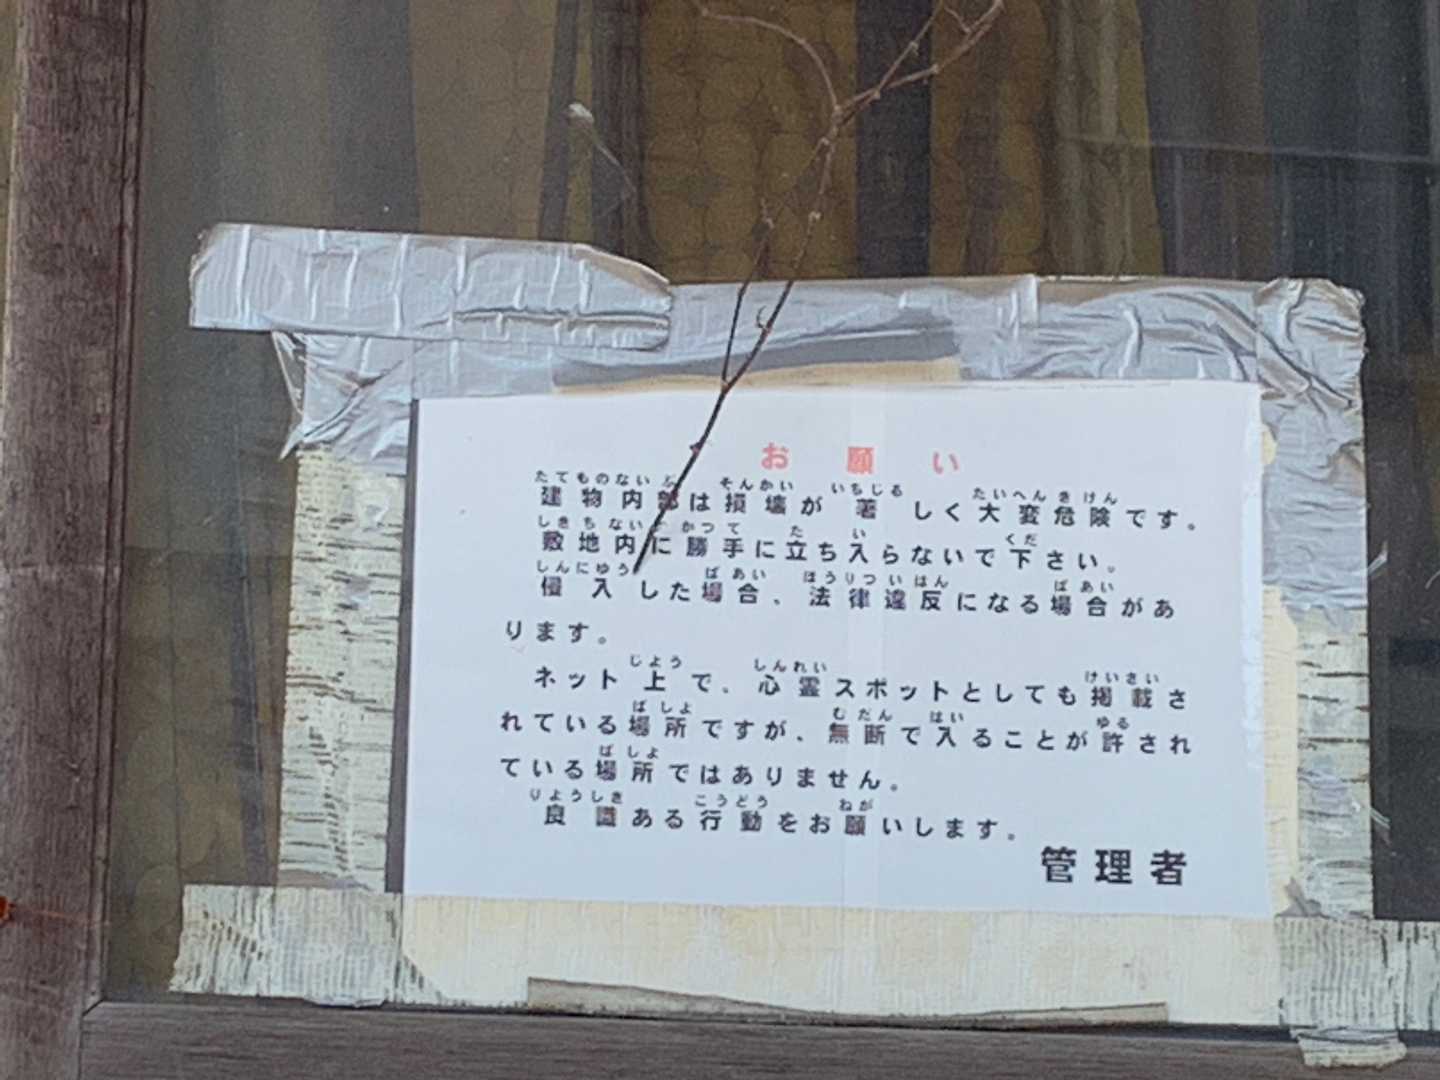 お願い
建物内部は損壊が著しく大変危険です。
敷地内に勝手に立ち入らないで下さい。
侵入した場合、法律違反になる場合があ
ります。
ネット上で、心霊スポットとしても掲載さ
れている場所ですが、無断で入ることが許され
ている場所ではありません。
良識ある行動をお願いします。
管理者